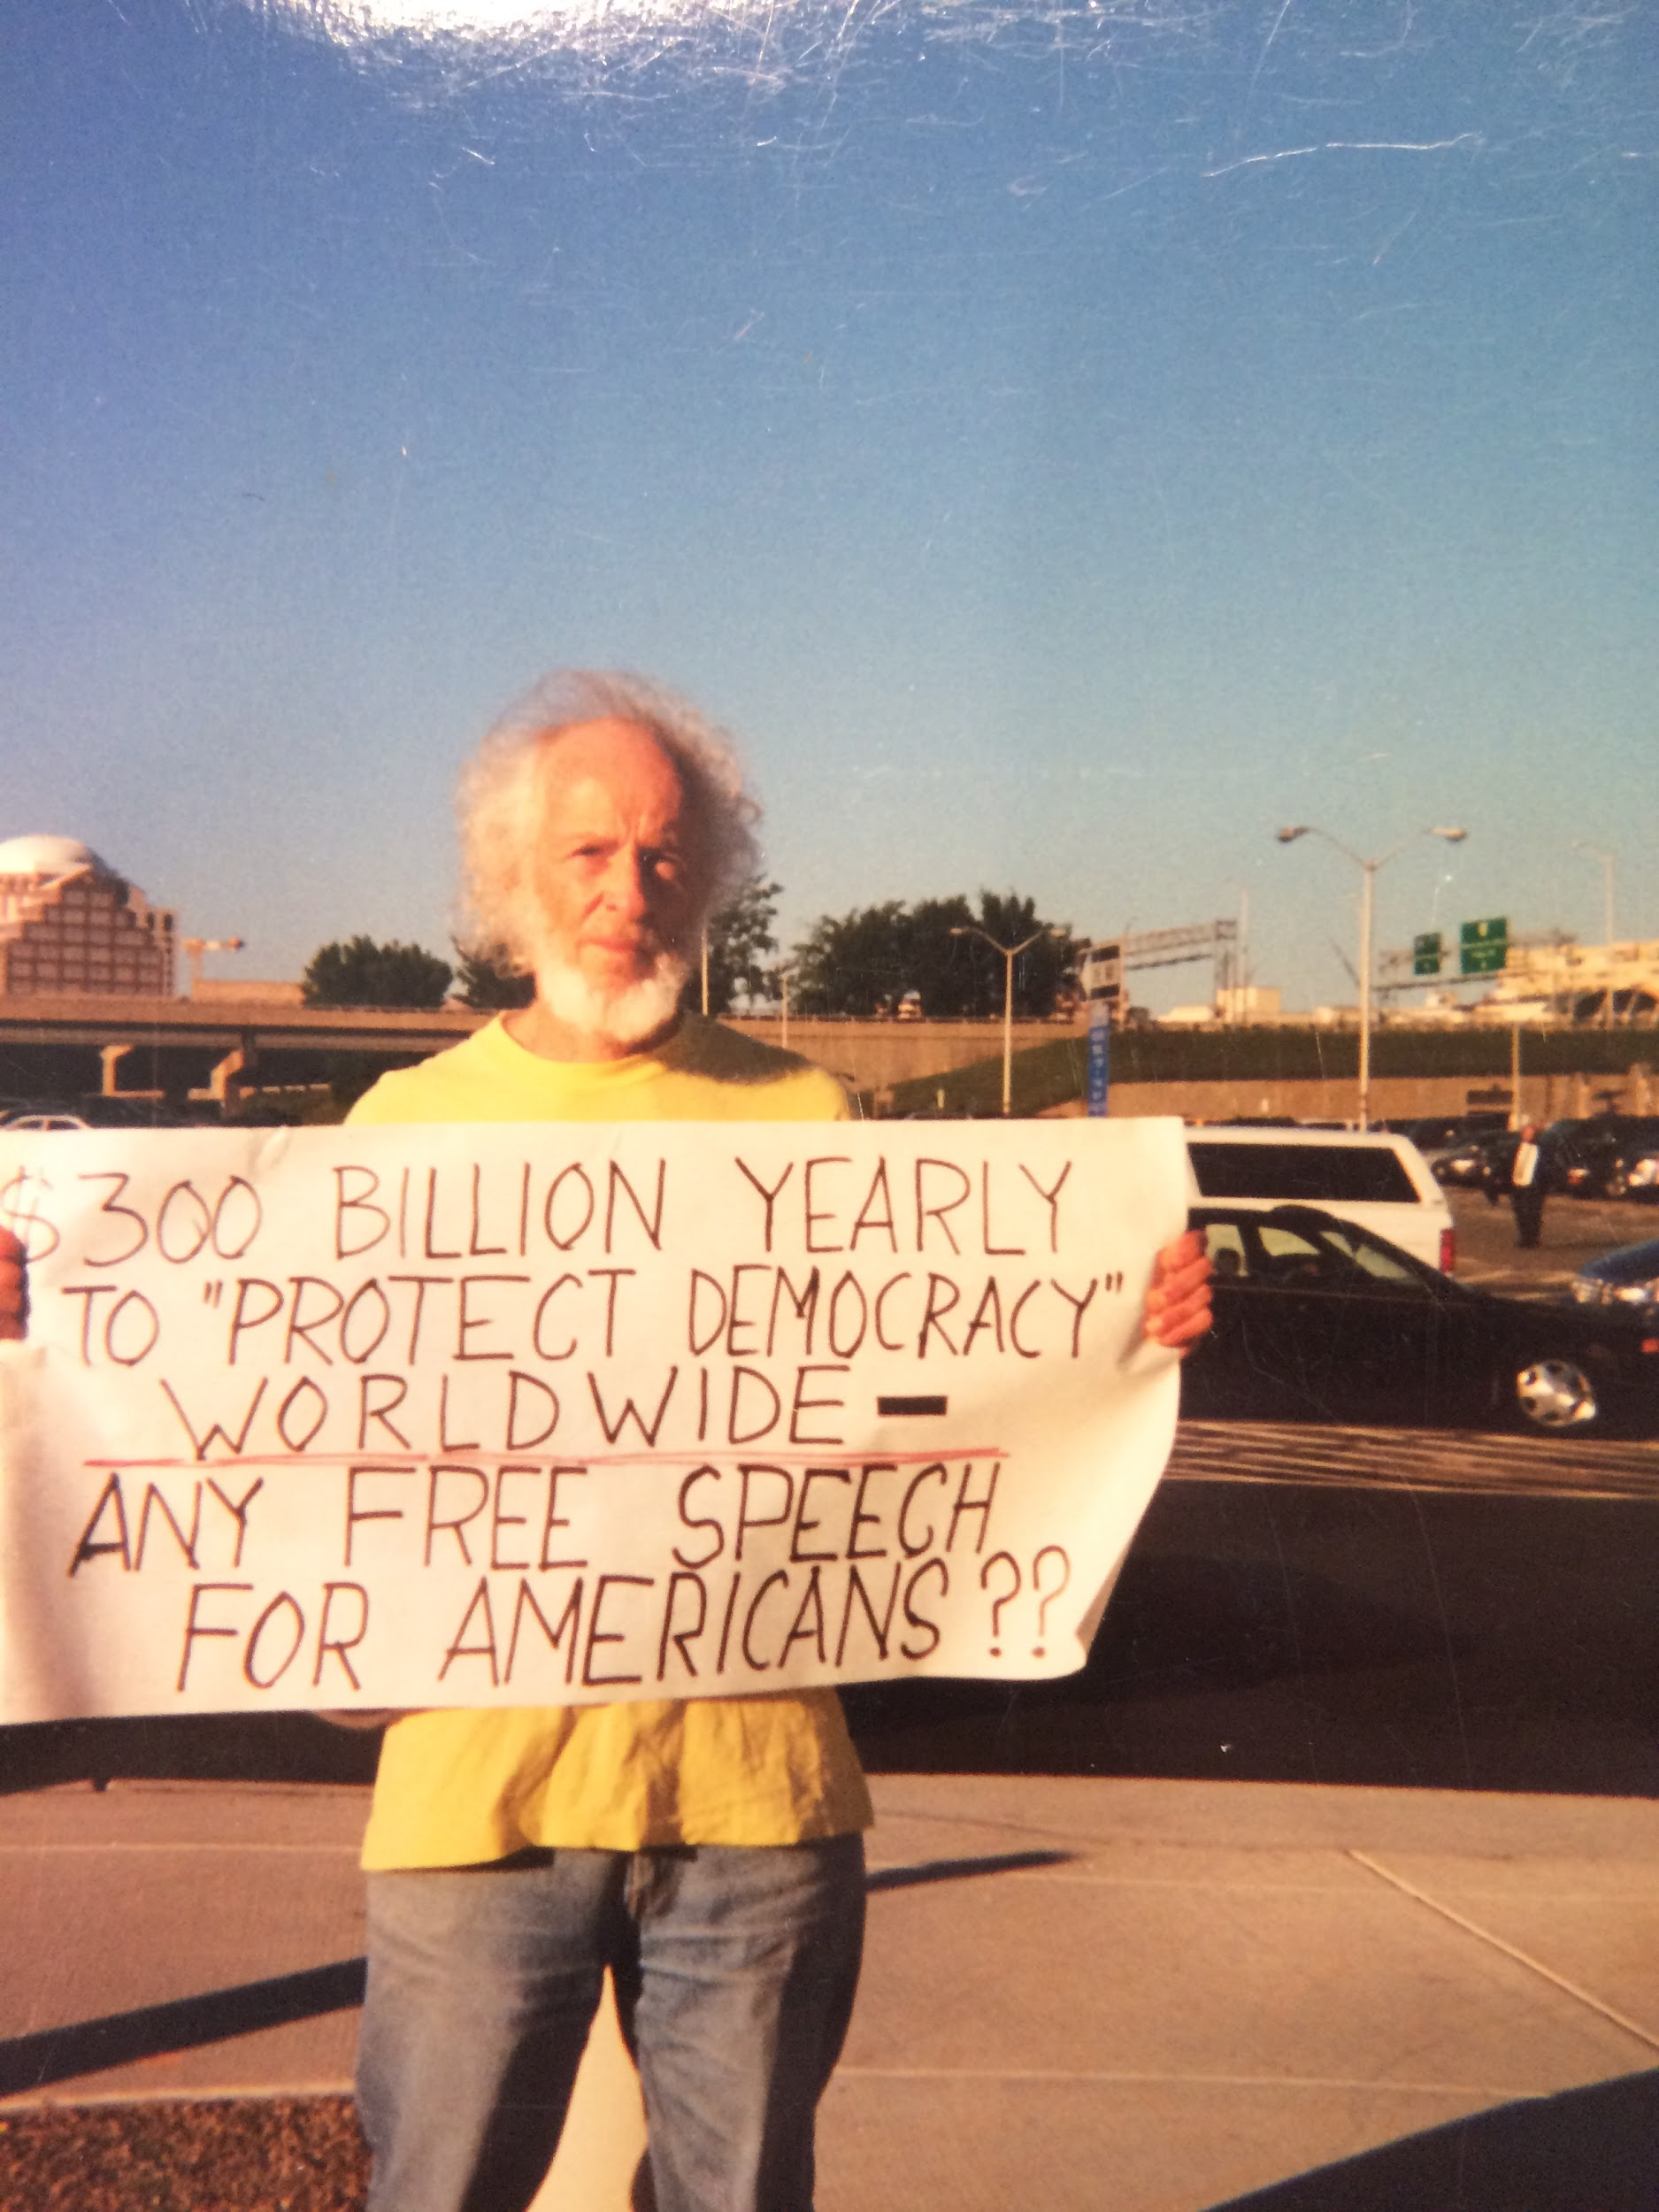 $300 BILLION YEARLY
TO "PROTECT DEMOCRACY"
WORLDWIDE-
ANY FREE SPEECH
FOR AMERICANS??